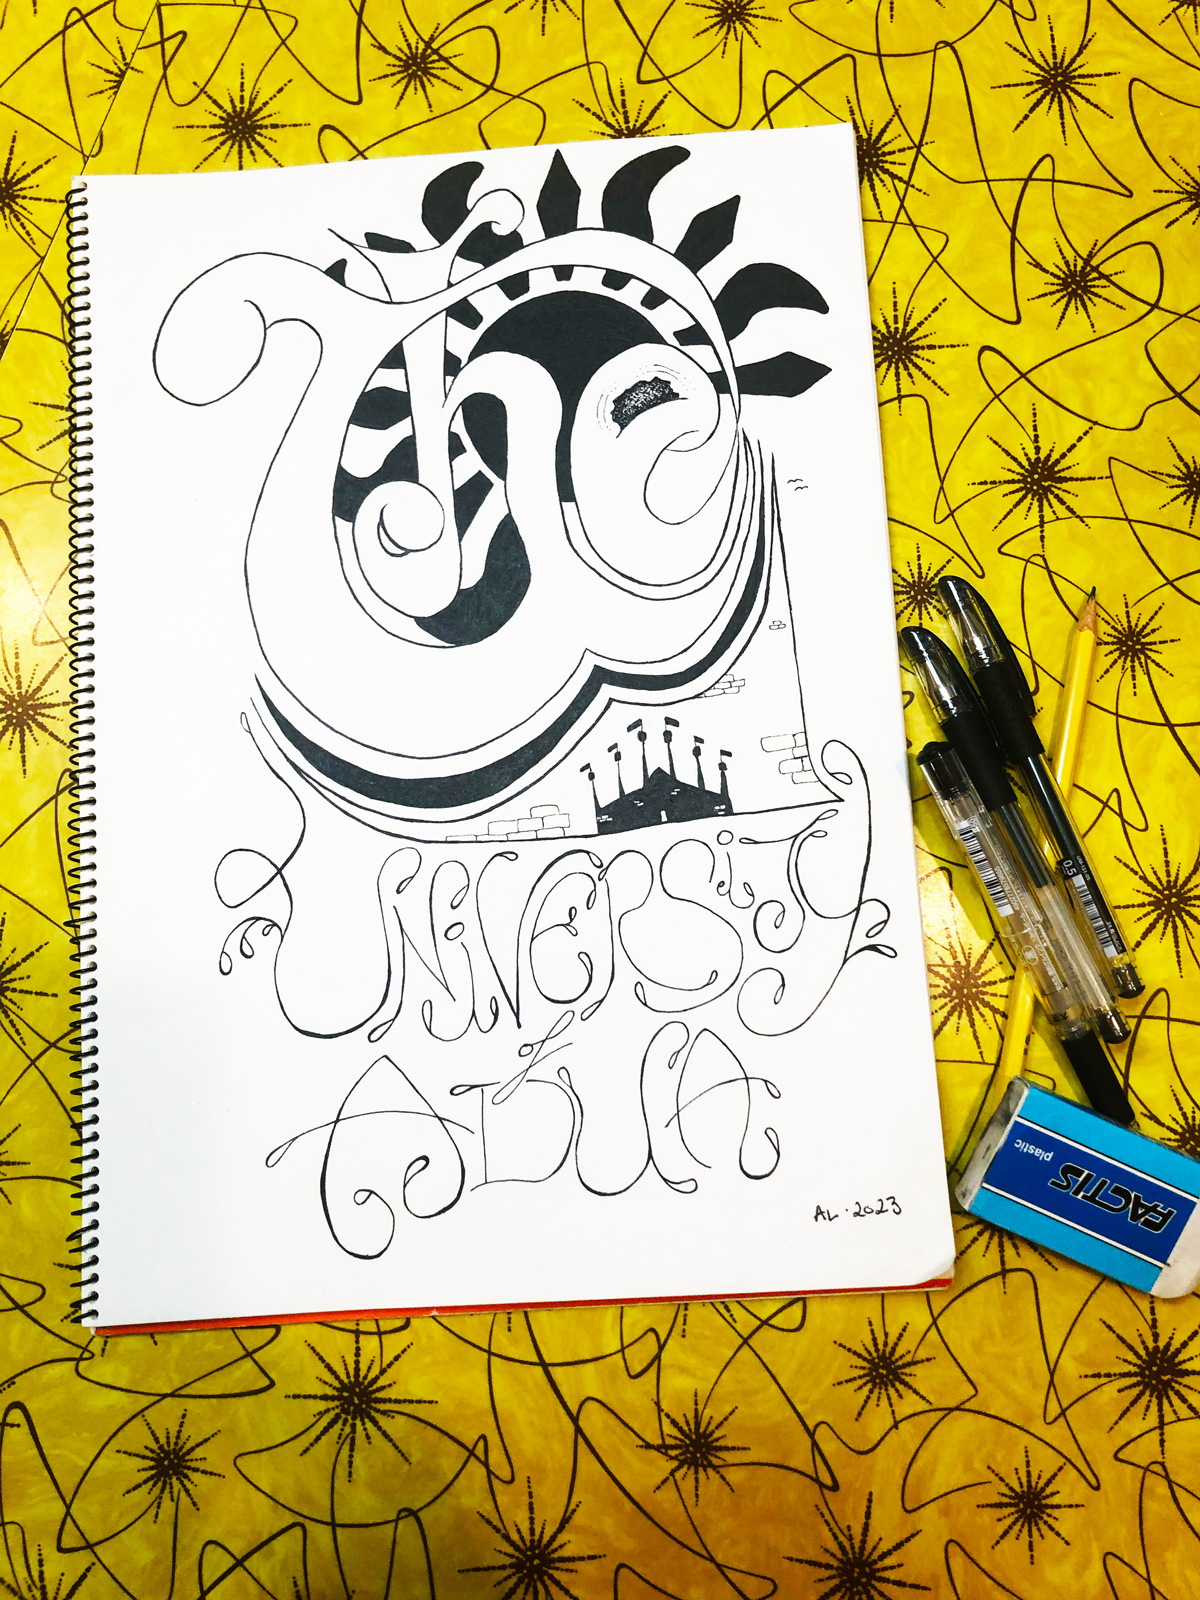 The
UNiVERSiTY
of
ADUA
AL·2023
0.5
FACTIS
plastic